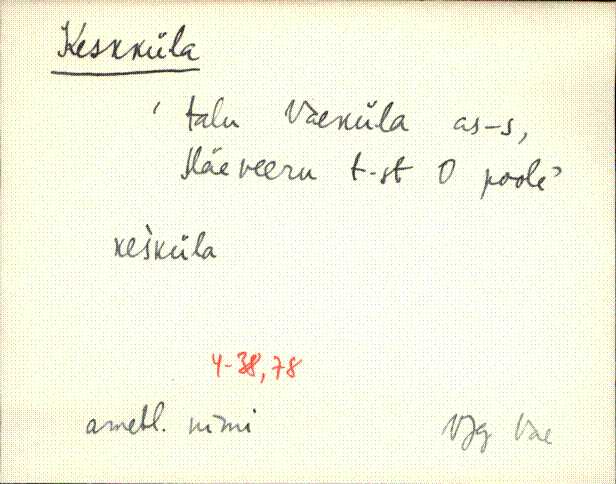 Keskküla
' talu Vaeküla as-s,
Mäeveeru t-st O poole'
kèsküla
4-38,78
ametl. nimi
VJg Vae